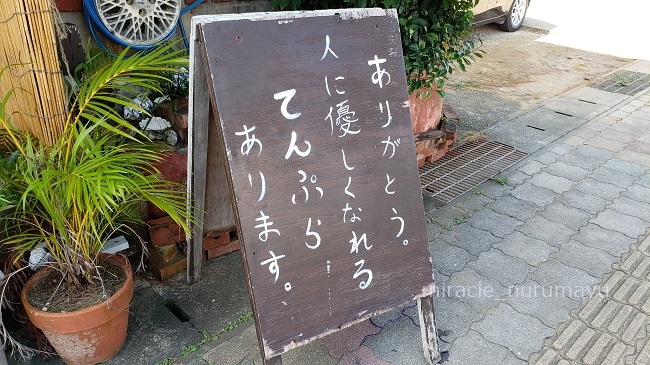 ありがとう。
人に優しくなれる
てんぷら
あります。
miracle_nurumayu